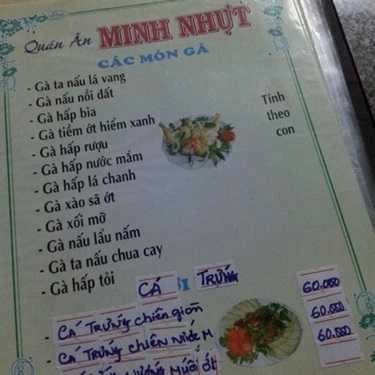 Quán Ăn MINH NHỰT
CÁC MÓN GÀ
- Gà ta nấu lá vang
- Gà nấu nồi đất
- Gà hấp bia
- Gà tiềm ớt hiểm xanh
- Gà hấp rượu
- Gà hấp nước mắm
- Gà hấp lá chanh
- Gà xào sã ớt
- Gà xối mỡ
- Gà nấu lẩu nấm
- Gà ta nấu chua cay
- Gà hấp tỏi
Tính
theo
con
CÁ TRỨNG
- CÁ TRỨNG chiên giòn 60.000
- CÁ TRỨNG chiên nước M 60.000
MUỐI ớt 60.000